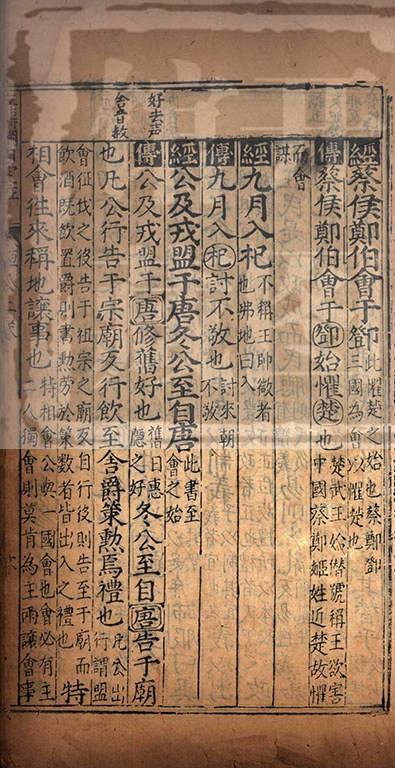 好去声
舍音赦
經蔡侯鄭伯會于鄧此懼楚之始也蔡鄭鄧三國為會以懼楚也
傳蔡侯鄭伯會于鄧始懼楚也楚武王始僭號稱王欲害中國蔡鄭姬姓近楚故懼
而會謀
經九月入杞不稱王帥微者也弗地曰入
傳九月入杞討不敬也討來朝不敬
經公及戎盟于唐冬公至自唐此書至會之始
傳公及戎盟于唐修舊好也舊日惠隱之好冬公至自唐告于廟
也凡公行告于宗廟反行飲至舍爵策勲焉禮也凡公出行謂盟
會征伐之後告于祖宗之廟反自行後則告至于廟而飲酒既飲置爵則書勲勞於策數者皆出入之禮也特
相會往來稱地讓事也特相會公與一國會也會必有主二人獨會則莫肯為主兩讓會事